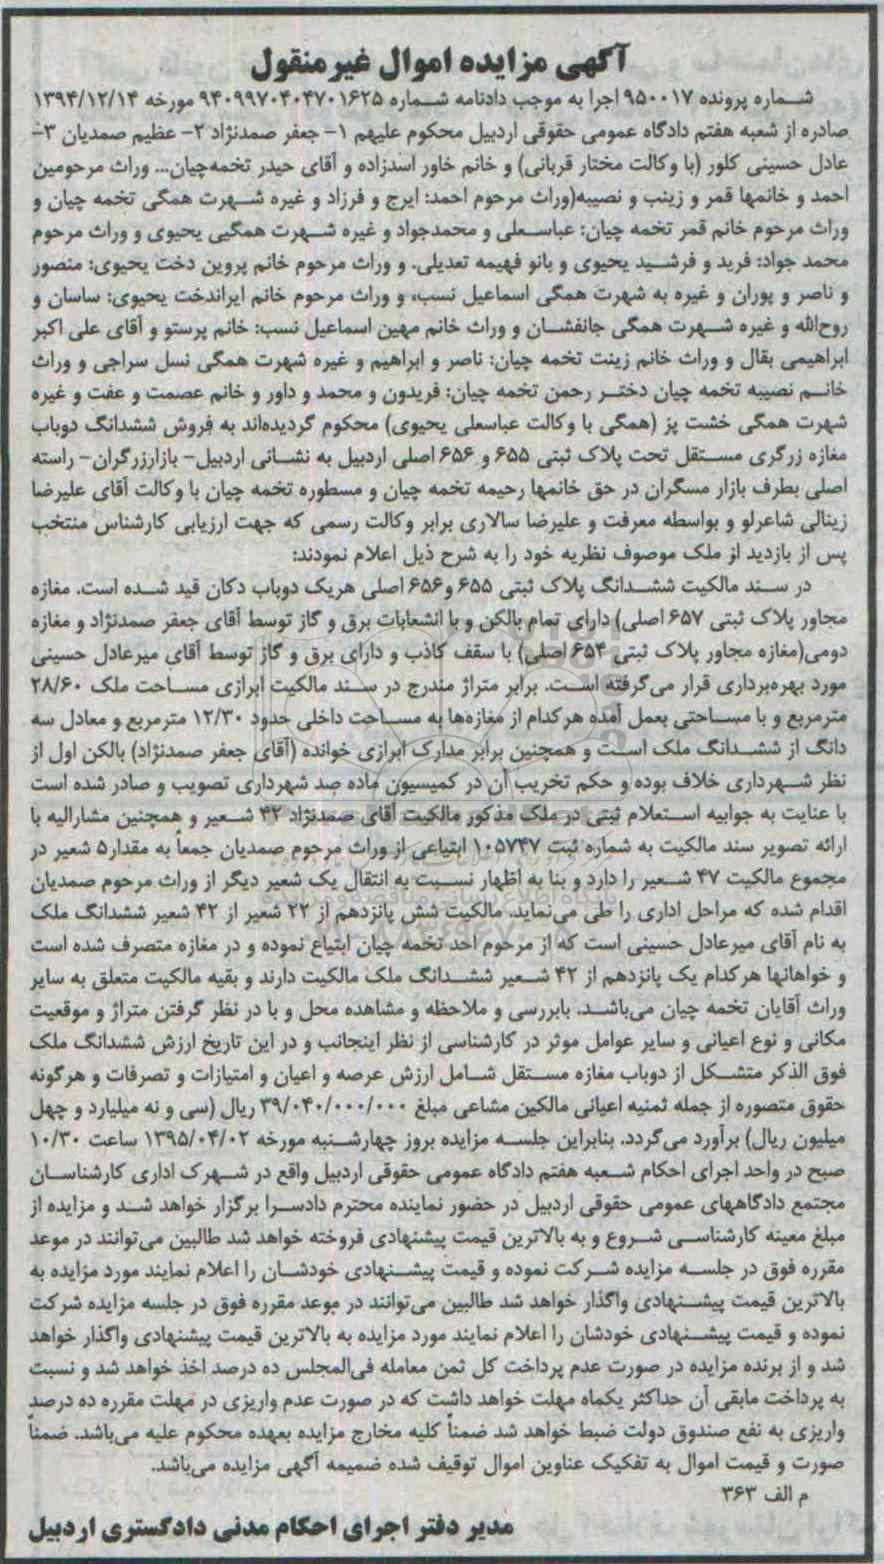 آگهی مزایده اموال غیرمنقول
شماره پرونده ۹۵۰۰۱۷ اجرا به موجب دادنامه شماره ۹۴۰۹۹۷۰۴۰۴۷۰۱۶۲۵ مورخه ۱۳۹۴/۱۲/۱۴
صادره از شعبه هفتم دادگاه عمومی حقوقی اردبیل محکوم علیهم ۱- جعفر صمدنژاد ۲- عظیم صمدیان ۳-
عادل حسینی کلور (با وکالت مختار قربانی) و خانم خاور اسدزاده و آقای حیدر تخمه‌چیان... وراث مرحومین
احمد و خانمها قمر و زینب و نصیبه(وراث مرحوم احمد: ایرج و فرزاد و غیره شهرت همگی تخمه چیان و
وراث مرحوم خانم قمر تخمه چیان: عباسعلی و محمدجواد و غیره شهرت همگیی یحیوی و وراث مرحوم
محمد جواد: فرید و فرشید یحیوی و بانو فهیمه تعدیلی. و وراث مرحوم خانم پروین دخت یحیوی: منصور
و ناصر و پوران و غیره به شهرت همگی اسماعیل نسب، و وراث مرحوم خانم ایراندخت یحیوی: ساسان و
روح‌الله و غیره شهرت همگی جانفشان و وراث خانم مهین اسماعیل نسب: خانم پرستو و آقای علی اکبر
ابراهیمی بقال و وراث خانم زینت تخمه چیان: ناصر و ابراهیم و غیره شهرت همگی نسل سراجی و وراث
خانم نصیبه تخمه چیان دختر رحمن تخمه چیان: فریدون و محمد و داور و خانم عصمت و عفت و غیره
شهرت همگی خشت پز (همگی با وکالت عباسعلی یحیوی) محکوم گردیده‌اند به فروش ششدانگ دوباب
مغازه زرگری مستقل تحت پلاک ثبتی ۶۵۵ و ۶۵۶ اصلی اردبیل به نشانی اردبیل- بازارزرگران- راسته
اصلی بطرف بازار مسگران در حق خانمها رحیمه تخمه چیان و مسطوره تخمه چیان با وکالت آقای علیرضا
زینالی شاعرلو و بواسطه معرفت و علیرضا سالاری برابر وکالت رسمی که جهت ارزیابی کارشناس منتخب
پس از بازدید از ملک موصوف نظریه خود را به شرح ذیل اعلام نمودند:
در سند مالکیت ششدانگ پلاک ثبتی ۶۵۵ و۶۵۶ اصلی هریک دوباب دکان قید شده است. مغازه
مجاور پلاک ثبتی ۶۵۷ اصلی) دارای تمام بالکن و با انشعابات برق و گاز توسط آقای جعفر صمدنژاد و مغازه
دومی(مغازه مجاور پلاک ثبتی ۶۵۴ اصلی) با سقف کاذب و دارای برق و گاز توسط آقای میرعادل حسینی
مورد بهره‌برداری قرار می‌گرفته است. برابر متراژ مندرج در سند مالکیت ابرازی مساحت ملک ۲۸/۶۰
مترمربع و با مساحتی بعمل آمده هرکدام از مغازه‌ها به مساحت داخلی حدود ۱۲/۳۰ مترمربع و معادل سه
دانگ از ششدانگ ملک است و همچنین برابر مدارک ابرازی خوانده (آقای جعفر صمدنژاد) بالکن اول از
نظر شهرداری خلاف بوده و حکم تخریب آن در کمیسیون ماده صد شهرداری تصویب و صادر شده است
با عنایت به جوابیه استعلام ثبتی در ملک مذکور مالکیت آقای صمدنژاد ۴۲ شعیر و همچنین مشارالیه با
ارائه تصویر سند مالکیت به شماره ثبت ۱۰۵۷۴۷ ابتیاعی از وراث مرحوم صمدیان جمعاً به مقدار۵ شعیر در
مجموع مالکیت ۴۷ شعیر را دارد و بنا به اظهار نسبت به انتقال یک شعیر دیگر از وراث مرحوم صمدیان
اقدام شده که مراحل اداری را طی می‌نماید. مالکیت شش پانزدهم از ۲۲ شعیر از ۴۲ شعیر ششدانگ ملک
به نام آقای میرعادل حسینی است که از مرحوم احد تخمه چیان ابتیاع نموده و در مغازه متصرف شده است
و خواهانها هرکدام یک پانزدهم از ۴۲ شعیر ششدانگ ملک مالکیت دارند و بقیه مالکیت متعلق به سایر
وراث آقایان تخمه چیان می‌باشد. بابررسی و ملاحظه و مشاهده محل و با در نظر گرفتن متراژ و موقعیت
مکانی و نوع اعیانی و سایر عوامل موثر در کارشناسی از نظر اینجانب و در این تاریخ ارزش ششدانگ ملک
فوق الذکر متشکل از دوباب مغازه مستقل شامل ارزش عرصه و اعیان و امتیازات و تصرفات و هرگونه
حقوق متصوره از جمله ثمنیه اعیانی مالکین مشاعی مبلغ ۳۹/۰۴۰/۰۰۰/۰۰۰ ریال (سی و نه میلیارد و چهل
میلیون ریال) برآورد می‌گردد. بنابراین جلسه مزایده بروز چهارشنبه مورخه ۱۳۹۵/۰۴/۰۲ ساعت ۱۰/۳۰
صبح در واحد اجرای احکام شعبه هفتم دادگاه عمومی حقوقی اردبیل واقع در شهرک اداری کارشناسان
مجتمع دادگاههای عمومی حقوقی اردبیل در حضور نماینده محترم دادسرا برگزار خواهد شد و مزایده از
مبلغ معینه کارشناسی شروع و به بالاترین قیمت پیشنهادی فروخته خواهد شد طالبین می‌توانند در موعد
مقرره فوق در جلسه مزایده شرکت نموده و قیمت پیشنهادی خودشان را اعلام نمایند مورد مزایده به
بالاترین قیمت پیشنهادی واگذار خواهد شد طالبین می‌توانند در موعد مقرره فوق در جلسه مزایده شرکت
نموده و قیمت پیشنهادی خودشان را اعلام نمایند مورد مزایده به بالاترین قیمت پیشنهادی واگذار خواهد
شد و از برنده مزایده در صورت عدم پرداخت کل ثمن معامله فی‌المجلس ده درصد اخذ خواهد شد و نسبت
به پرداخت مابقی آن حداکثر یکماه مهلت خواهد داشت که در صورت عدم واریزی در مهلت مقرره ده درصد
واریزی به نفع صندوق دولت ضبط خواهد شد ضمناً کلیه مخارج مزایده بعهده محکوم علیه می‌باشد. ضمناً
صورت و قیمت اموال به تفکیک عناوین اموال توقیف شده ضمیمه آگهی مزایده می‌باشد.
م الف ۳۶۳
مدیر دفتر اجرای احکام مدنی دادگستری اردبیل